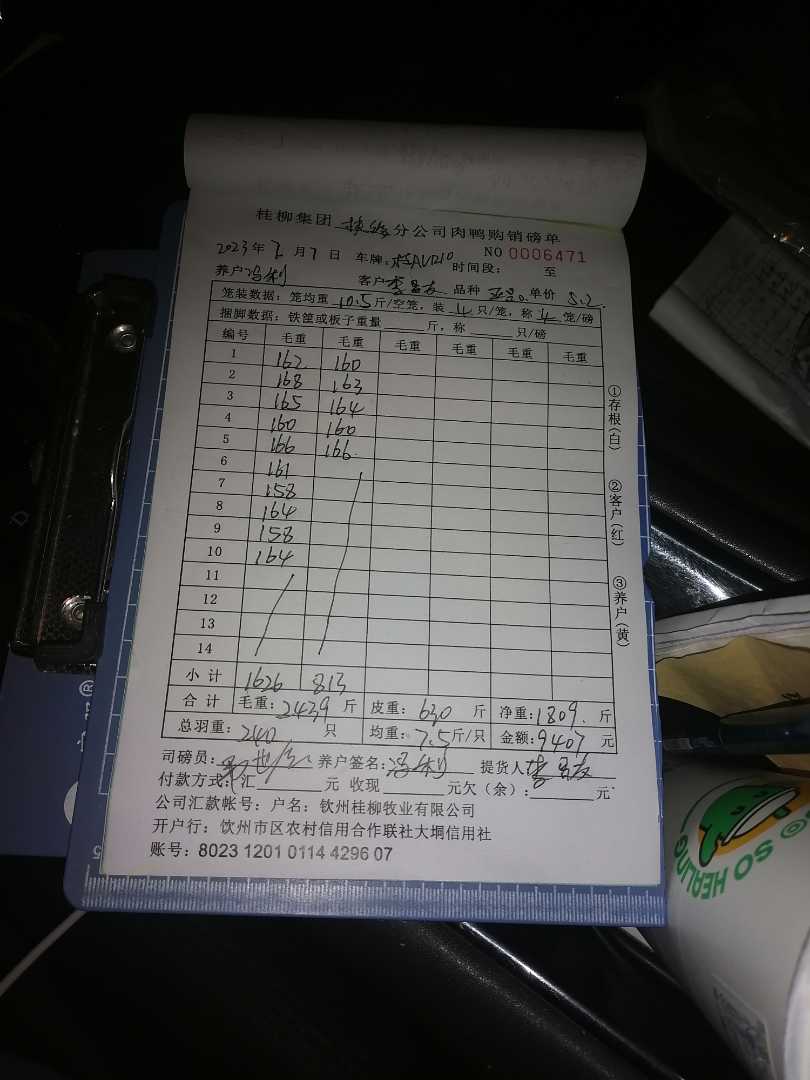 桂柳集团 分公司肉鸭购销磅单
2023年 月7日 车牌: 时间段: 至 NO 0006471
养户冯利 客户李 品种 单价 5.2
笼装数据: 笼均重10.5斤/空笼, 装4只/笼, 称4笼/磅
捆脚数据: 铁筐或板子重量 斤, 称 只/磅
编号 毛重 毛重 毛重 毛重 毛重 毛重
1 162 160
2 168 163
3 165 164
4 160 160
5 166 166
6 161
7 158
8 164
9 158
10 164
11
12
13
14
小计 1626 813
合计 毛重: 2439斤 皮重: 630斤 净重: 1809斤
总羽重: 240只 均重: 7.5斤/只 金额: 9407元
司磅员: 养户签名: 冯利 提货人李
付款方式: 汇 元 收现 元欠(余): 元
公司汇款帐号: 户名: 钦州桂柳牧业有限公司
开户行: 钦州市区农村信用合作联社大垌信用社
账号: 8023 1201 0114 4296 07
①存根(白) ②客户(红) ③养户(黄)
SO HEALING